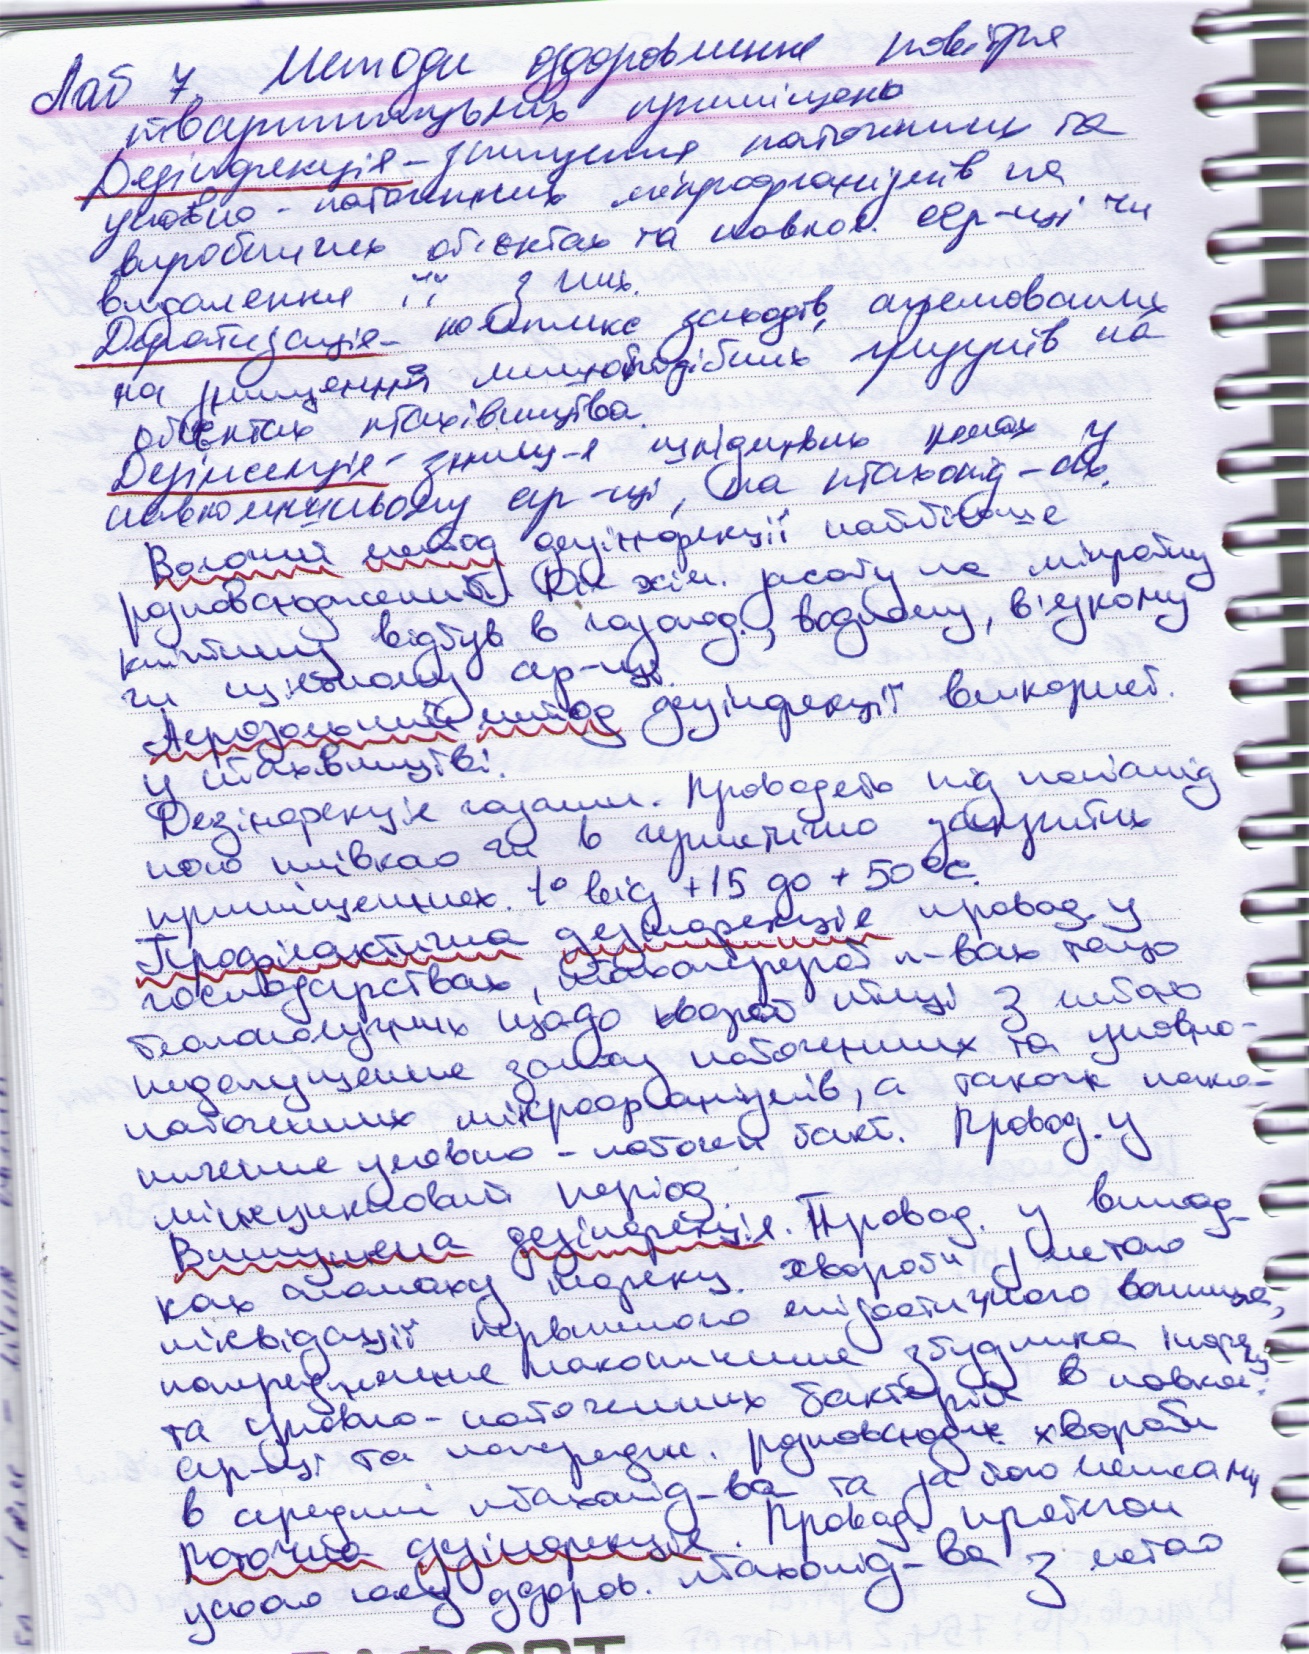 Лаб 7. Методи оздоровлення повітря
тваринницьких приміщень
Дезінфекція – знищення патогенних та
умовно-патогенних мікроорганізмів на
виробничих об'єктах та навкол. сер-щі чи
видалення її з них.
Дератизація – комплекс заходів, спрямованих
на знищення мишоподібних гризунів на
об'єктах птахівництва.
Дезінсекція – знищ-я шкідливих комах у
навколишньому сер-щі, на птахопід-ах.
Вологий метод дезінфекції найбільше
розповсюджений. Дія хім. засобу на мікробну
клітину відбув в газопод., водному, в'язкому
чи щільному сер-щі.
Аерозольний метод дезінфекції використ.
у птахівництві.
Дезінфекція газами. Проводять під поліамід
ною плівкою чи в герметично закритих
приміщеннях. t° від +15 до +50°С.
Профілактична дезінфекція провод. у
господарствах, птахопереробн п-вах тощо
благополучних щодо хвороб птиці з метою
недопущення заносу патогенних та умовно-
патогенних мікроорганізмів, а також нако-
пичення умовно-патоген бакт. Провод. у
міжцикловий період.
Вимушена дезінфекція. Провод. у випад-
ках спалаху інфекц. хвороби у метою
ліквідації первинного епізоотичного вогнища,
попередження накопичення збудника інфекц
та умовно-патогенних бактерій в навкол.
сер-щі та попередж. розповсюдж. хвороби
в середині птахопід-ва та за його межами
Поточна дезінфекція. Провод. протягом
усього часу оздоров. птахопід-ва з метою